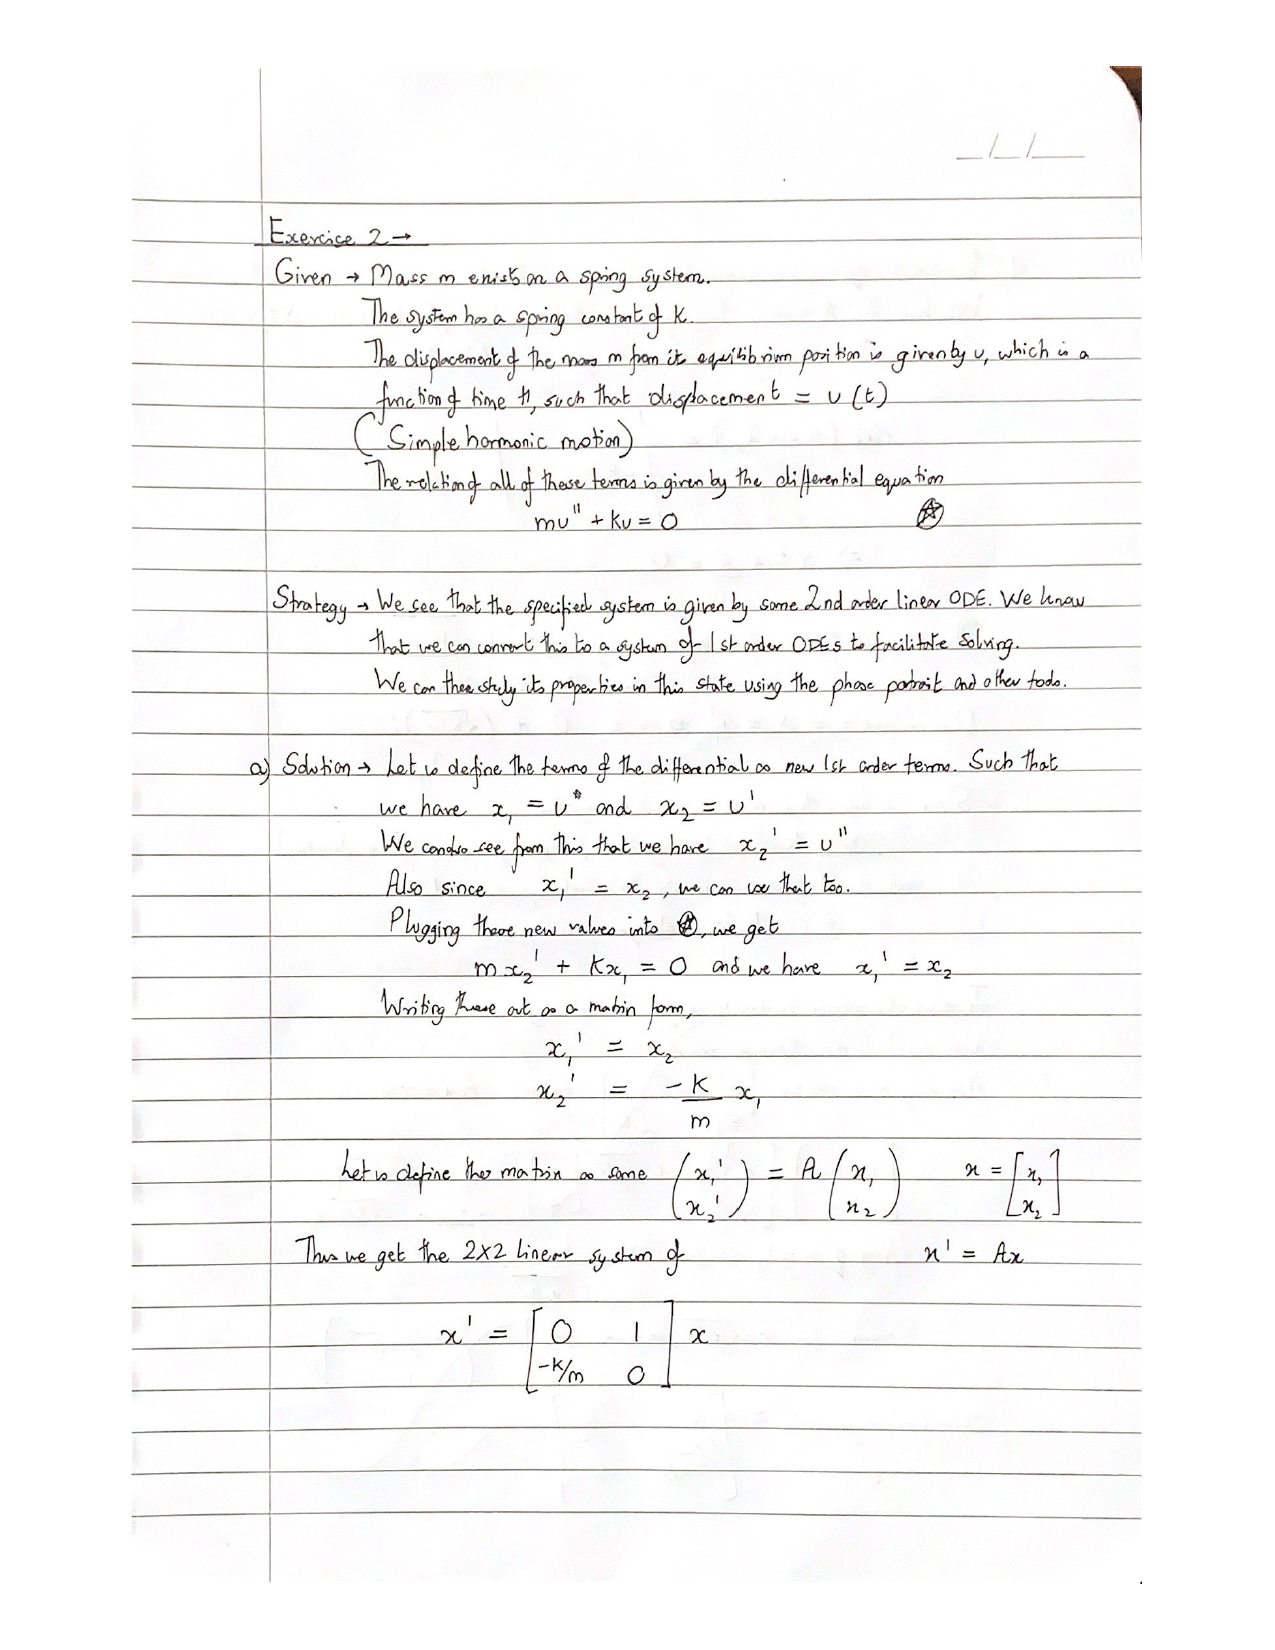 __/__/____
Exercice 2 →
Given → Mass m exists on a spring system.
The system has a spring constant of K.
The displacement of the mass m from it equilibrium position is given by u, which is a
function of time t, such that displacement = u(t)
(Simple harmonic motion)
The relation of all of these terms is given by the differential equation
mu'' + ku = 0 ⍟
Strategy → We see that the specified system is given by some 2nd order linear ODE. We know
that we can convert this to a system of 1st order ODEs to facilitate solving.
We can then study its properties in this state using the phase portrait and other tools.
a) Solution → Let us define the terms of the differential as new 1st order terms. Such that
we have x₁ = u and x₂ = u'
We can also see from this that we have x₂' = u''
Also since x₁' = x₂, we can use that too.
Plugging these new values into ⍟, we get
mx₂' + Kx₁ = 0 and we have x₁' = x₂
Writing these out as a matrix form,
x₁' = x₂
x₂' = -K/m x₁
Let us define this matrix as some (x₁' x₂') = A (x₁ x₂) x = [x₁ x₂]
Thus we get the 2×2 linear system of x' = Ax
x' = [0 1
-K/m 0] x